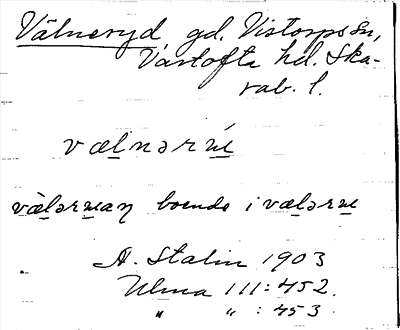 Välneryd gd. Vistorps sn,
Vartofta hd. Ska-
rab. l.
vælnərɯ́
væ̀lərɯaŋ boende i vælərɯ
A. Stalin 1903
Ulma 111:452.
" " : 453.